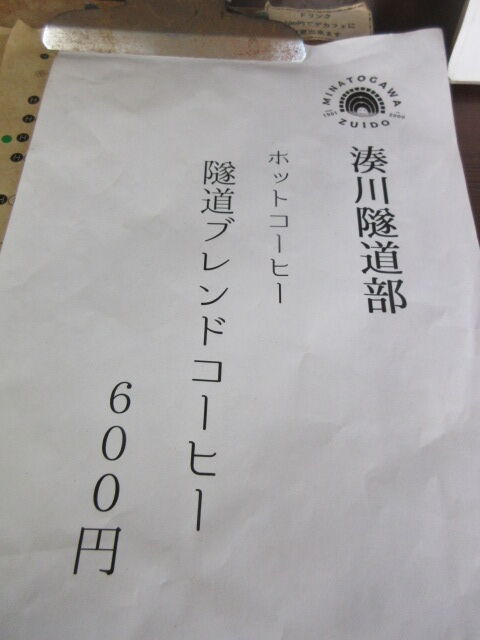 MINATOGAWA
1901 2000
ZUIDO
湊川隧道部
ホットコーヒー
隧道ブレンドコーヒー
600円
ドリンク